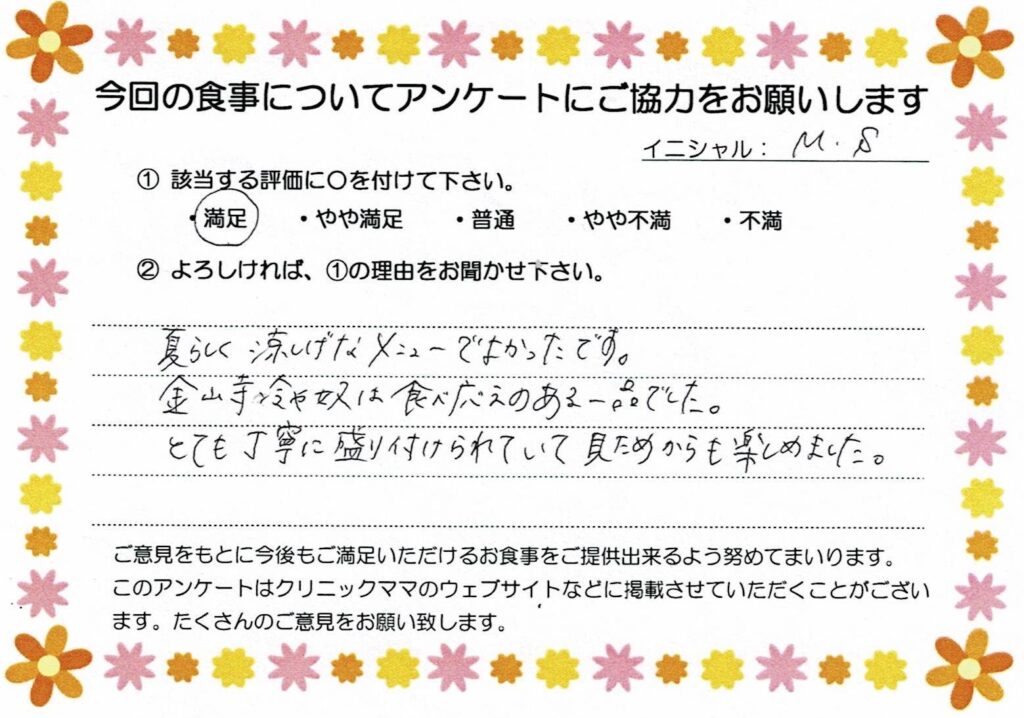 今回の食事についてアンケートにご協力をお願いします
イニシャル： M.S
① 該当する評価に〇を付けて下さい。
・満足 ・やや満足 ・普通 ・やや不満 ・不満
② よろしければ、①の理由をお聞かせ下さい。
夏らしく涼しげなメニューでよかったです。
金山寺冷や奴は食べ応えのある一品でした。
とても丁寧に盛り付けられていて見ためからも楽しめました。
ご意見をもとに今後もご満足いただけるお食事をご提供出来るよう努めてまいります。
このアンケートはクリニックママのウェブサイトなどに掲載させていただくことがござい
ます。たくさんのご意見をお願い致します。